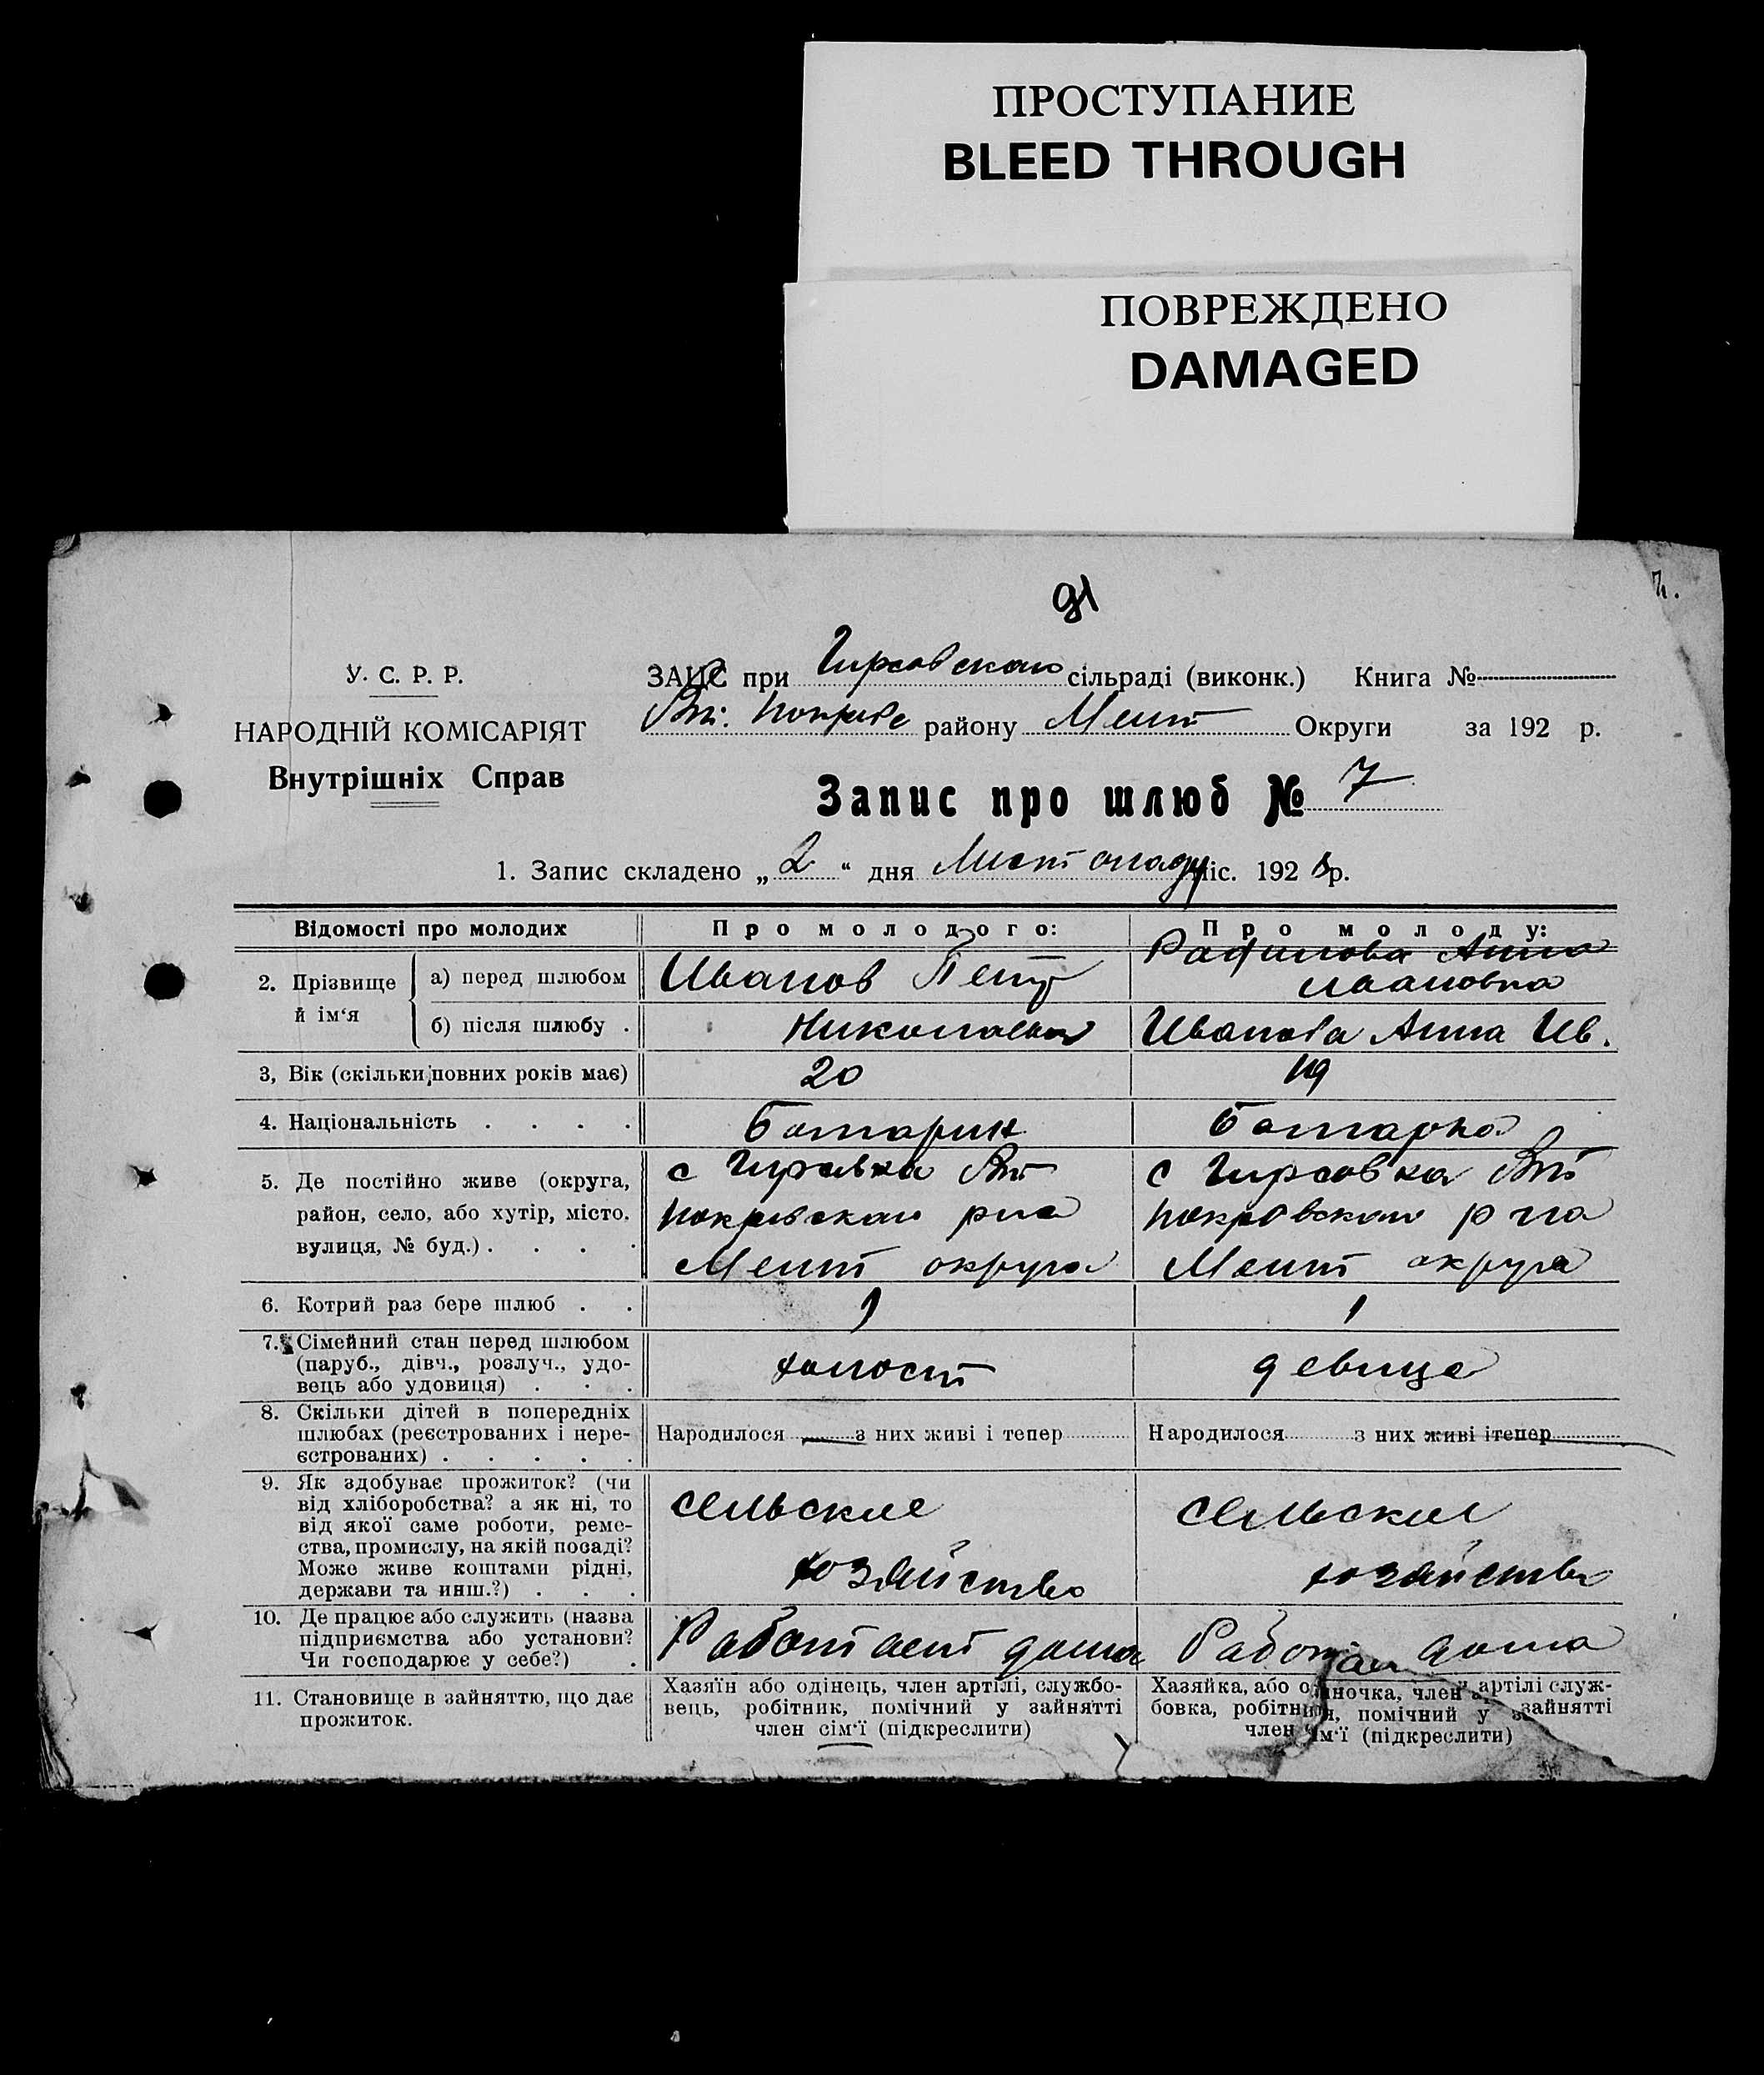 ПРОСТУПАНИЕ
BLEED THROUGH
ПОВРЕЖДЕНО
DAMAGED
91
У. С. Р. Р.
НАРОДНІЙ КОМІСАРІЯТ
Внутрішніх Справ
ЗАЦС при Гирсовском сільраді (виконк.) Книга №
покров району Мелит Округи за 192 р.
Запис про шлюб № 7
1. Запис складено „ 2 “ дня Листопаду міс. 1928 р.
Відомості про молодих Про молодого: Про молоду:
2. Прізвище й ім‘я
а) перед шлюбом Иванов Петр Анна Ивановна
б) після шлюбу . Николаевич Иванова Анна Ив.
3, Вік (скільки повних років має) 20 19
4. Національність . . . . Болгарин Болгарка
5. Де постійно живе (округа, район, село, або хутір, місто, вулиця, № буд.) . . . .
с Гирсовка
покровскаи рна
Мелит округа
с Гирсовка
покровскаи рна
Мелит округа
6. Котрий раз бере шлюб . . 1 1
7. Сімейний стан перед шлюбом
(паруб., дівч., розлуч., удо-
вець або удовиця) . . . холост девица
8. Скільки дітей в попередніх
шлюбах (реєстрованих і нере-
єстрованих) . . . . .
Народилося з них живі і тепер
Народилося з них живі ітепер
9. Як здобуває прожиток? (чи
від хліборобства? а як ні, то
від якої саме роботи, реме-
ства, промислу, на якій посаді?
Може живе коштами рідні,
держави та инш.?) . . .
сельское
хозяйство
сельское
хозяйство
10. Де працює або служить (назва
підприємства або установи?
Чи господарює у себе?) .
Работает дома
Работает дома
11. Становище в зайняттю, що дає
прожиток.
Хазяїн або одінець, член артілі, службо-
вець, робітник, помічний у зайнятті
член сім‘ї (підкреслити)
Хазяйка, або одиночка, член артілі служ-
бовка, робітниця, помічний у зайнятті
член сім‘ї (підкреслити)